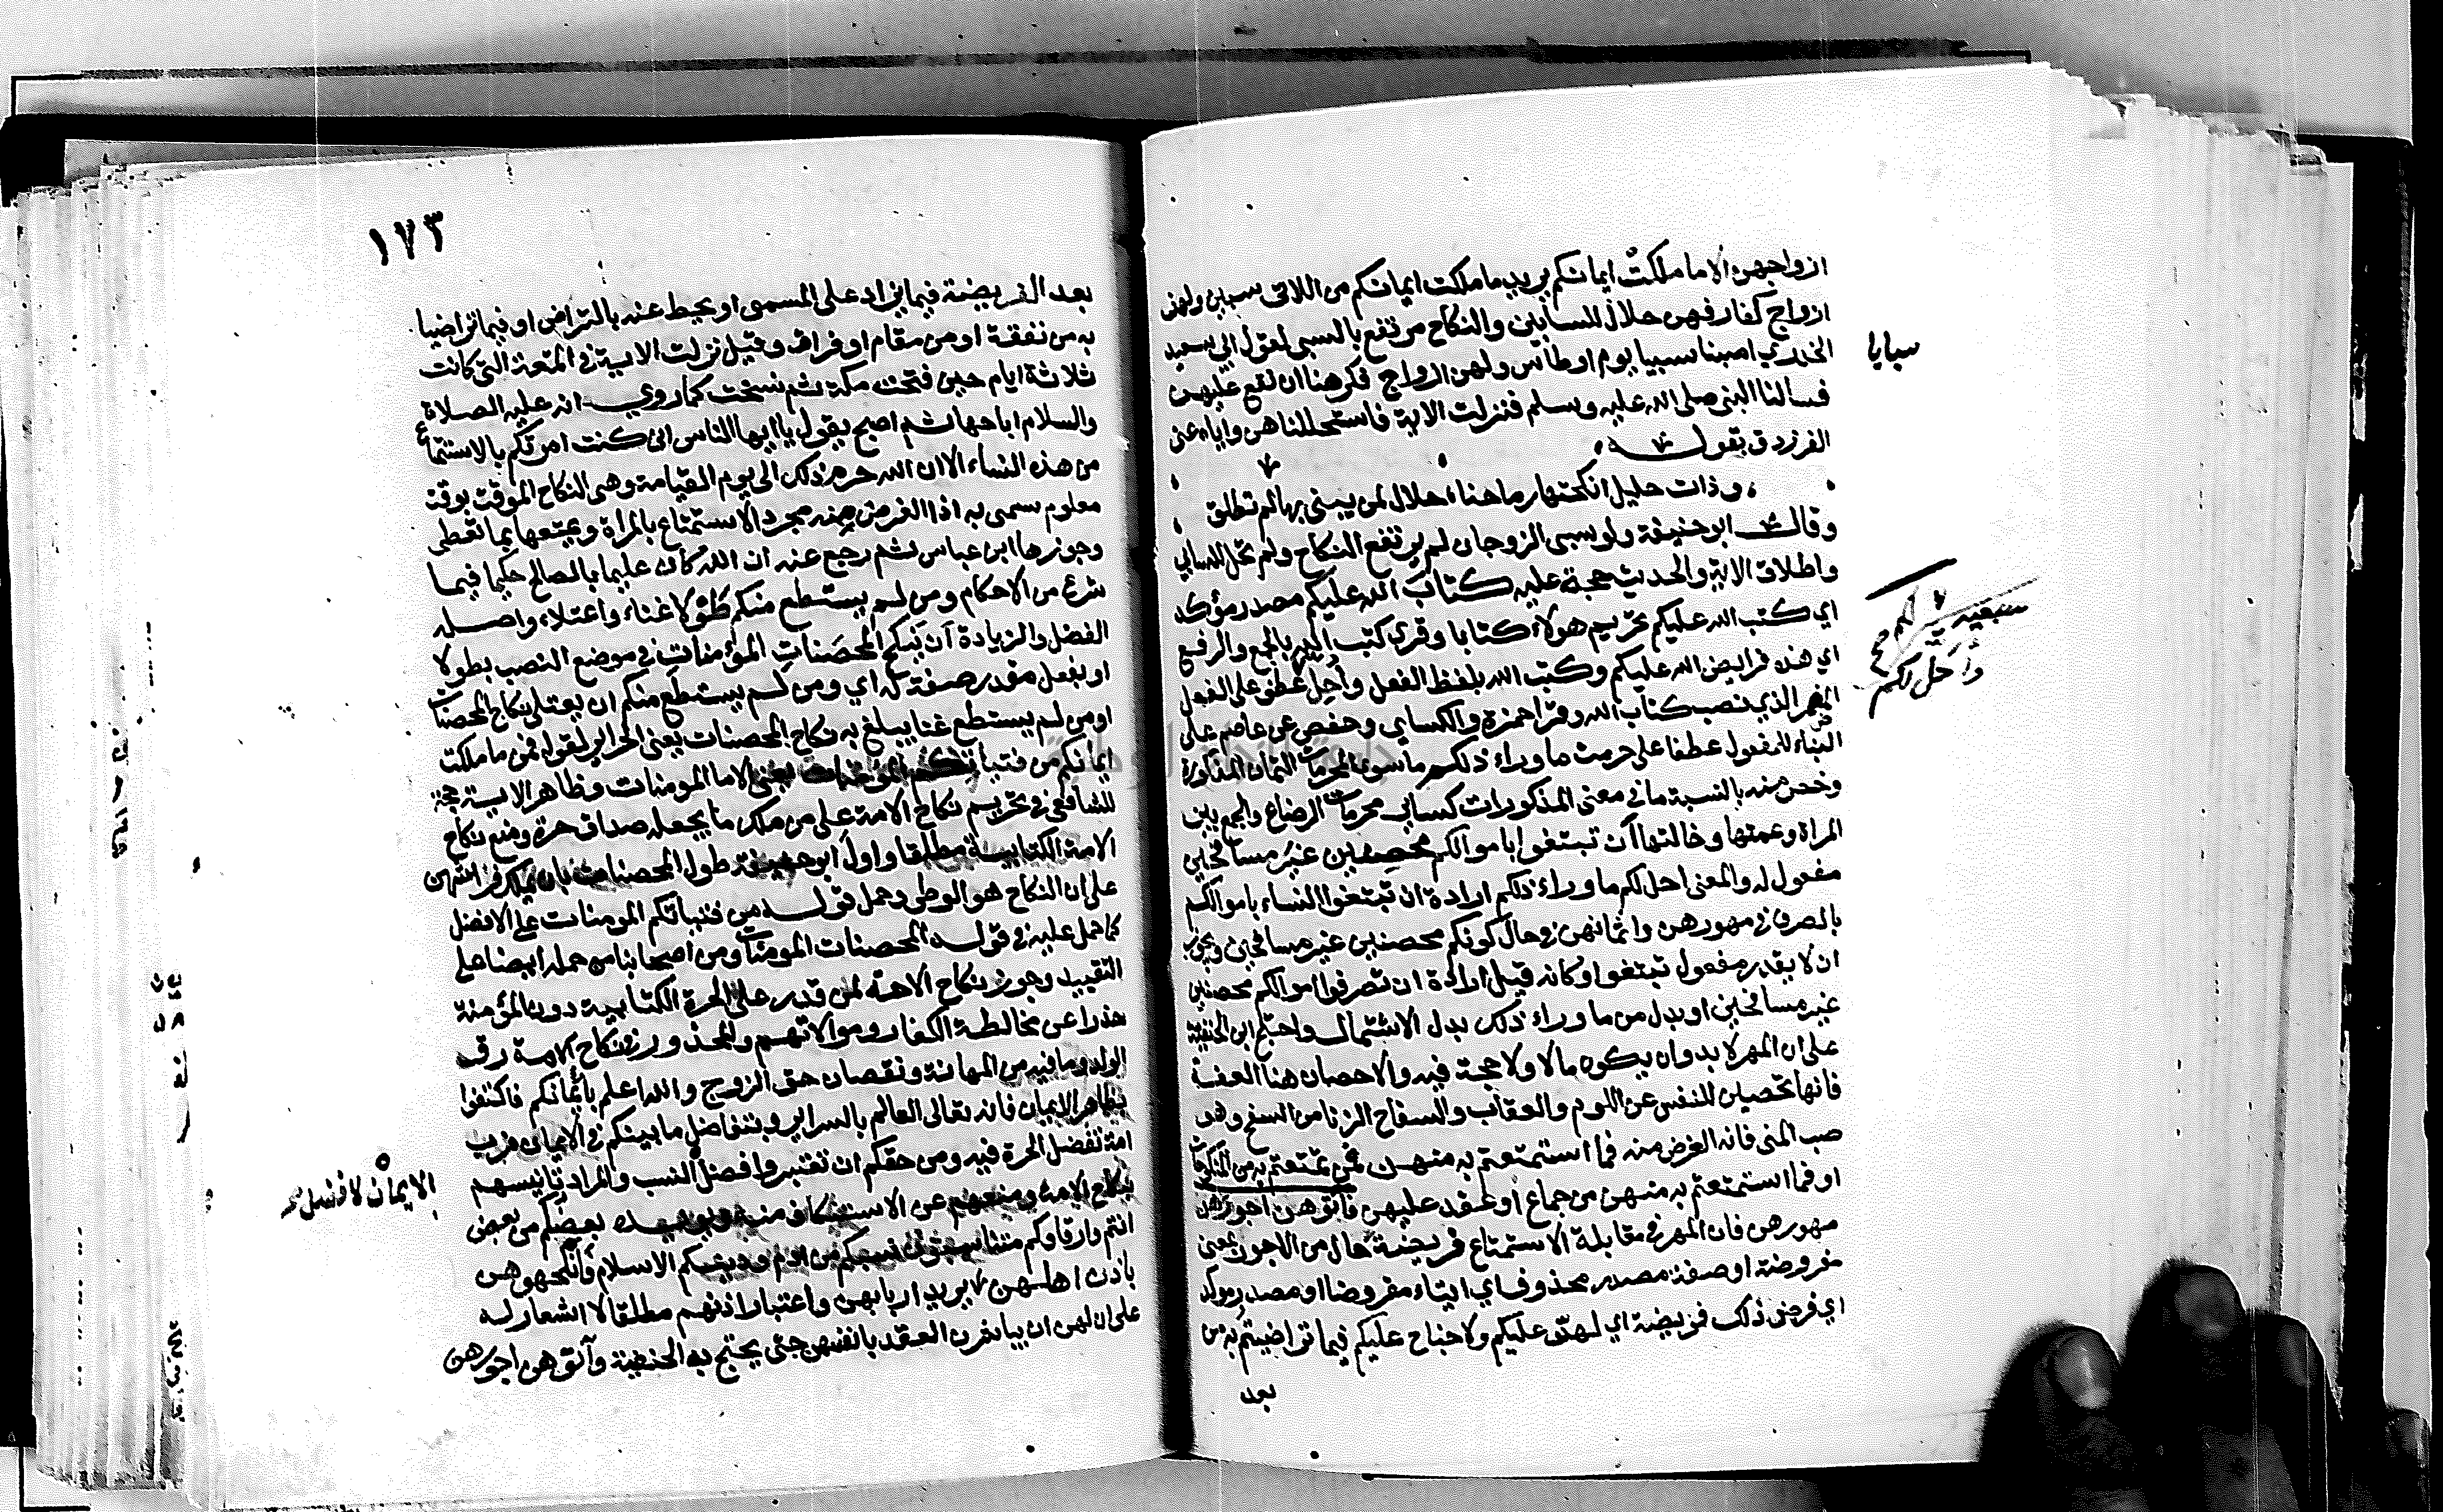 ازواجهن الا ما ملكت ايمانكم يريد ما ملكت ايمانكم من اللاتى سبين ولهن
ازواج كفار فهن حلال للسابين والنكاح مرتفع بالسبى لقول ابي سعيد
الخدري اصبنا سبيا يوم اوطاس ولهن ازواج فكرهنا ان نقع عليهن
فسالنا النبى صلى الله عليه وسلم فنزلت الاية فاستحللناهن واياه عنى
الفرزدق بقوله
وذات حليل انكحتها رماحنا حلال لمن يبنى بها لم تطلق
وقال ابو حنيفة ولو سبى الزوجان لم يرتفع النكاح ولم تحل للسابي
واطلاق الاية والحديث حجة عليه كتاب الله عليكم مصدر مؤكد
اي كتب الله عليكم تحريم هولاء كتابا وقرى كتب الله بالجمع والرفع
اي هذه فرايض الله عليكم وكتب الله بلفظ الفعل وأحل عطف على الفعل
المضمر الذي نصب كتاب الله وقرا حمزة والكسايى وحفص عن عاصم على
البناء للمفعول عطفا على حرمت ما وراء ذلكم ما سوى المحرمات الثمان المذكورة
وخص منه بالنسبة ما في معنى المذكورات كسائر محرمات الرضاع والجمع بين
المراة وعمتها وخالتها أن تبتغوا باموالكم محصنين غير مسافحين
مفعول له والمعنى احل لكم ما وراء ذلكم ارادة ان تبتغوا النساء باموالكم
بالصرف في مهورهن واثمانهن في حال كونكم محصنين غير مسافحين ويجوز
ان لا يقدر مفعول تبتغوا وكانه قيل ارادة ان تصرفوا اموالكم محصنين
غير مسافحين او بدل من ما وراء ذلك بدل الاشتمال واحتج به الحنفية
على ان المهر لا بد وان يكون مالا ولا حجة فيه والاحصان هنا العفة
فانها تحصين للنفس عن اللوم والعقاب والسفاح الزنا من السفح وهو
صب المنى فانه الغرض منه فما استمتعتم به منهن فمن تمتعتم به من المنكوحات
او فما استمتعتم به منهن من جماع او عقد عليهن فآتوهن اجورهن
مهورهن فان المهر في مقابلة الاستمتاع فريضة حال من الاجور بمعنى
مفروضة او صفة مصدر محذوف اي ايتاء مفروضا او مصدر موكد
اي فرض ذلك فريضة اي لهن عليكم ولا جناح عليكم فيما تراضيتم به من
بعد
سبايا
وأحل لكم
١٧٣
بعد الفريضة فيما يزاد على المسمى او يحط عنه بالتراضى او فيما تراضيا
به من نفقة او من مقام او فراق وقيل نزلت الاية في المتعة التى كانت
ثلاثة ايام حين فتحت مكة ثم نسخت كما روي انه عليه الصلاة
والسلام اباحها ثم اصبح يقول يا ايها الناس انى كنت امرتكم بالاستمتاع
من هذه النساء الا ان الله حرم ذلك الى يوم القيامة وهى النكاح الموقت بوقت
معلوم سمى به اذا الغرض منه مجرد الاستمتاع بالمراة وتمتعها بما تعطى
وجوزها ابن عباس ثم رجع عنه ان الله كان عليما بالمصالح حكيما فيما
شرع من الاحكام ومن لم يستطع منكم طولا غناء واعتلاء واصله
الفضل والزيادة أن ينكح المحصنات المؤمنات في موضع النصب بطولا
او بفعل مقدر صفة له اي ومن لم يستطع منكم ان يعتلى نكاح المحصنات
او من لم يستطع غنا يبلغ به نكاح المحصنات يعنى الحراير لقوله فمن ما ملكت
ايمانكم من فتياتكم المؤمنات يعنى الاما المومنات وظاهر الاية حجة
للشافعى في تحريم نكاح الامة على من ملك ما يجعله صداق حرة ومنع نكاح
الامة الكتابية مطلقا واول ابو حنيفة طول المحصنات بان يملك فراشهن
على ان النكاح هو الوطى وحمل قوله من فتياتكم المومنات على الافضل
كما حمل عليه في قوله المحصنات المومنات ومن اصحابنا من حمله ايضا على
التقييد وجوز نكاح الامة لمن قدر على الحرة الكتابية دون المؤمنة
حذرا عن مخالطة الكفار وموالاتهم والمحذور في نكاح الامة رق
الولد وما فيه من المهانة ونقصان حق الزوج والله اعلم بايمانكم فاكتفوا
بظاهر الايمان فانه تعالى العالم بالسراير وبتفاضل ما بينكم في الايمان فرب
امة تفضل الحرة فيه ومن حقكم ان تعتبروا فضل النسب والمراد تانيسهم
بنكاح الامة ومنعهم عن الاستنكاف منه بعضكم من بعض
انتم وارقاوكم متناسبون نسبكم من ادم ودينكم الاسلام فانكحوهن
باذن اهلهن يريد اربابهن واعتبار اذنهم مطلقا لا اشعار له
على ان لهن ان يباشرن العقد بانفسهن حتى يحتج به الحنفية وآتوهن اجورهن
الايمان لا فضل